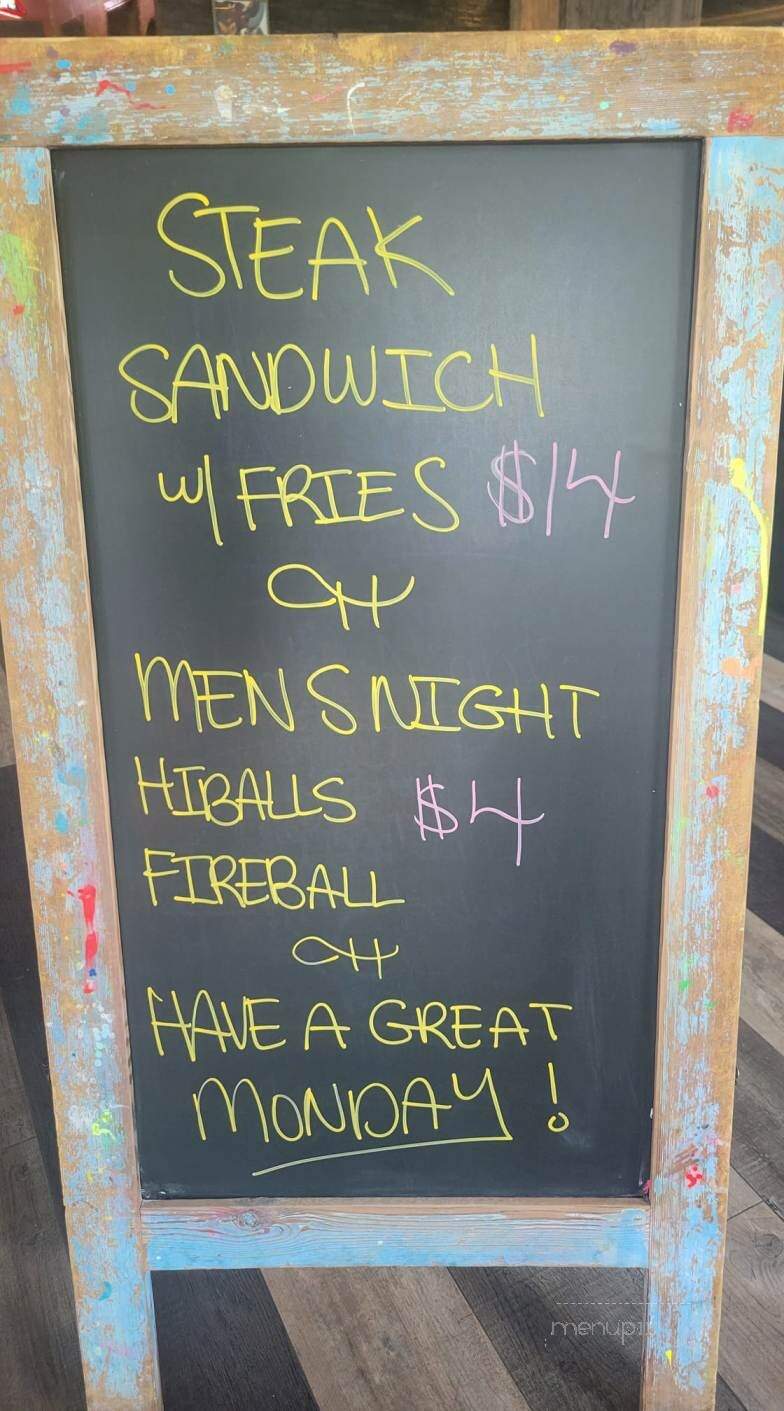 STEAK
SANDWICH
W/ FRIES $14
MENS NIGHT
HIBALLS $4
FIREBALL
HAVE A GREAT
MONDAY!
menupix